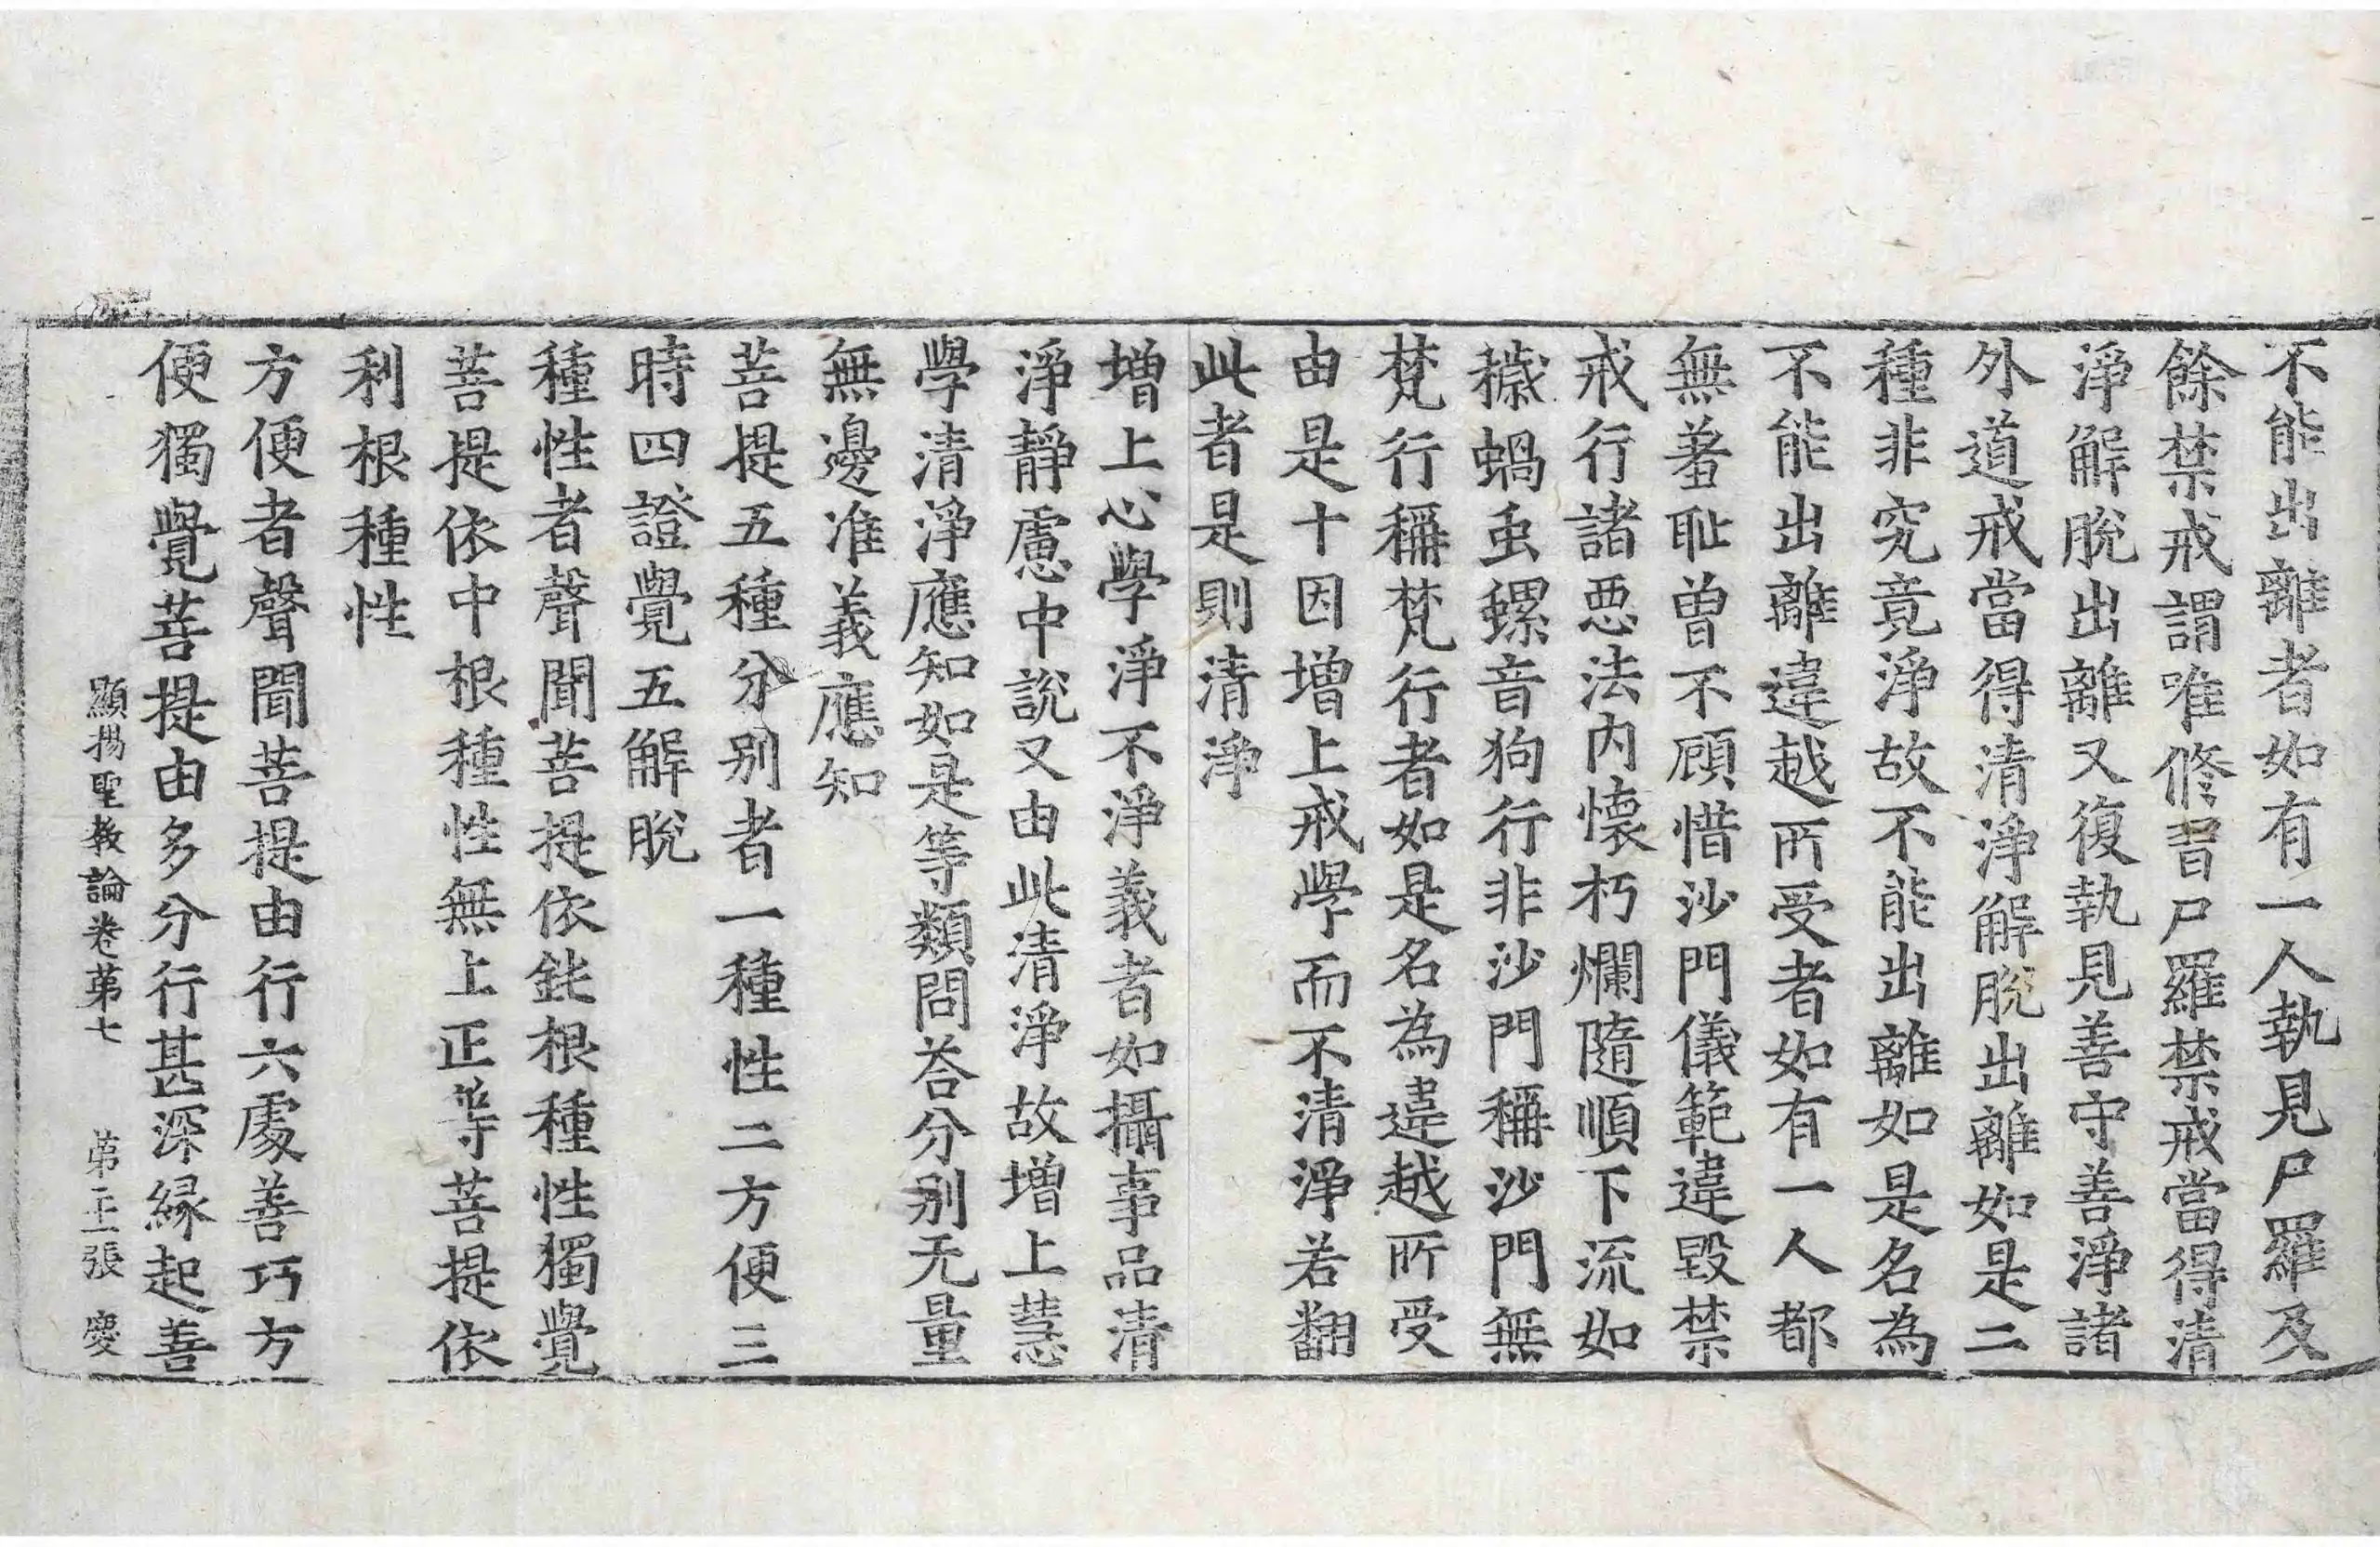 不能出離者如有一人執見尸羅及
餘禁戒謂唯修習尸羅禁戒當得清
淨解脫出離又復執見善守善淨諸
外道戒當得清淨解脫出離如是二
種非究竟淨故不能出離如是名為
不能出離違越所受者如有一人都
無羞恥曾不顧惜沙門儀範違毀禁
戒行諸惡法內懷朽爛隨順下流如
穢蝸虫螺音狗行非沙門稱沙門無
梵行稱梵行者如是名為違越所受
由是十因增上戒學而不清淨若翻
此者是則清淨
增上心學淨不淨義者如攝事品清
淨靜慮中說又由此清淨故增上慧
學清淨應知如是等類問荅分別无量
無邊准義應知
菩提五種分別者一種性二方便三
時四證覺五解脫
種性者聲聞菩提依鈍根種性獨覺
菩提依中根種性無上正等菩提依
利根種性
方便者聲聞菩提由行六處善巧方
便獨覺菩提由多分行甚深緣起善
顯揚聖教論卷第七 第 張 慶